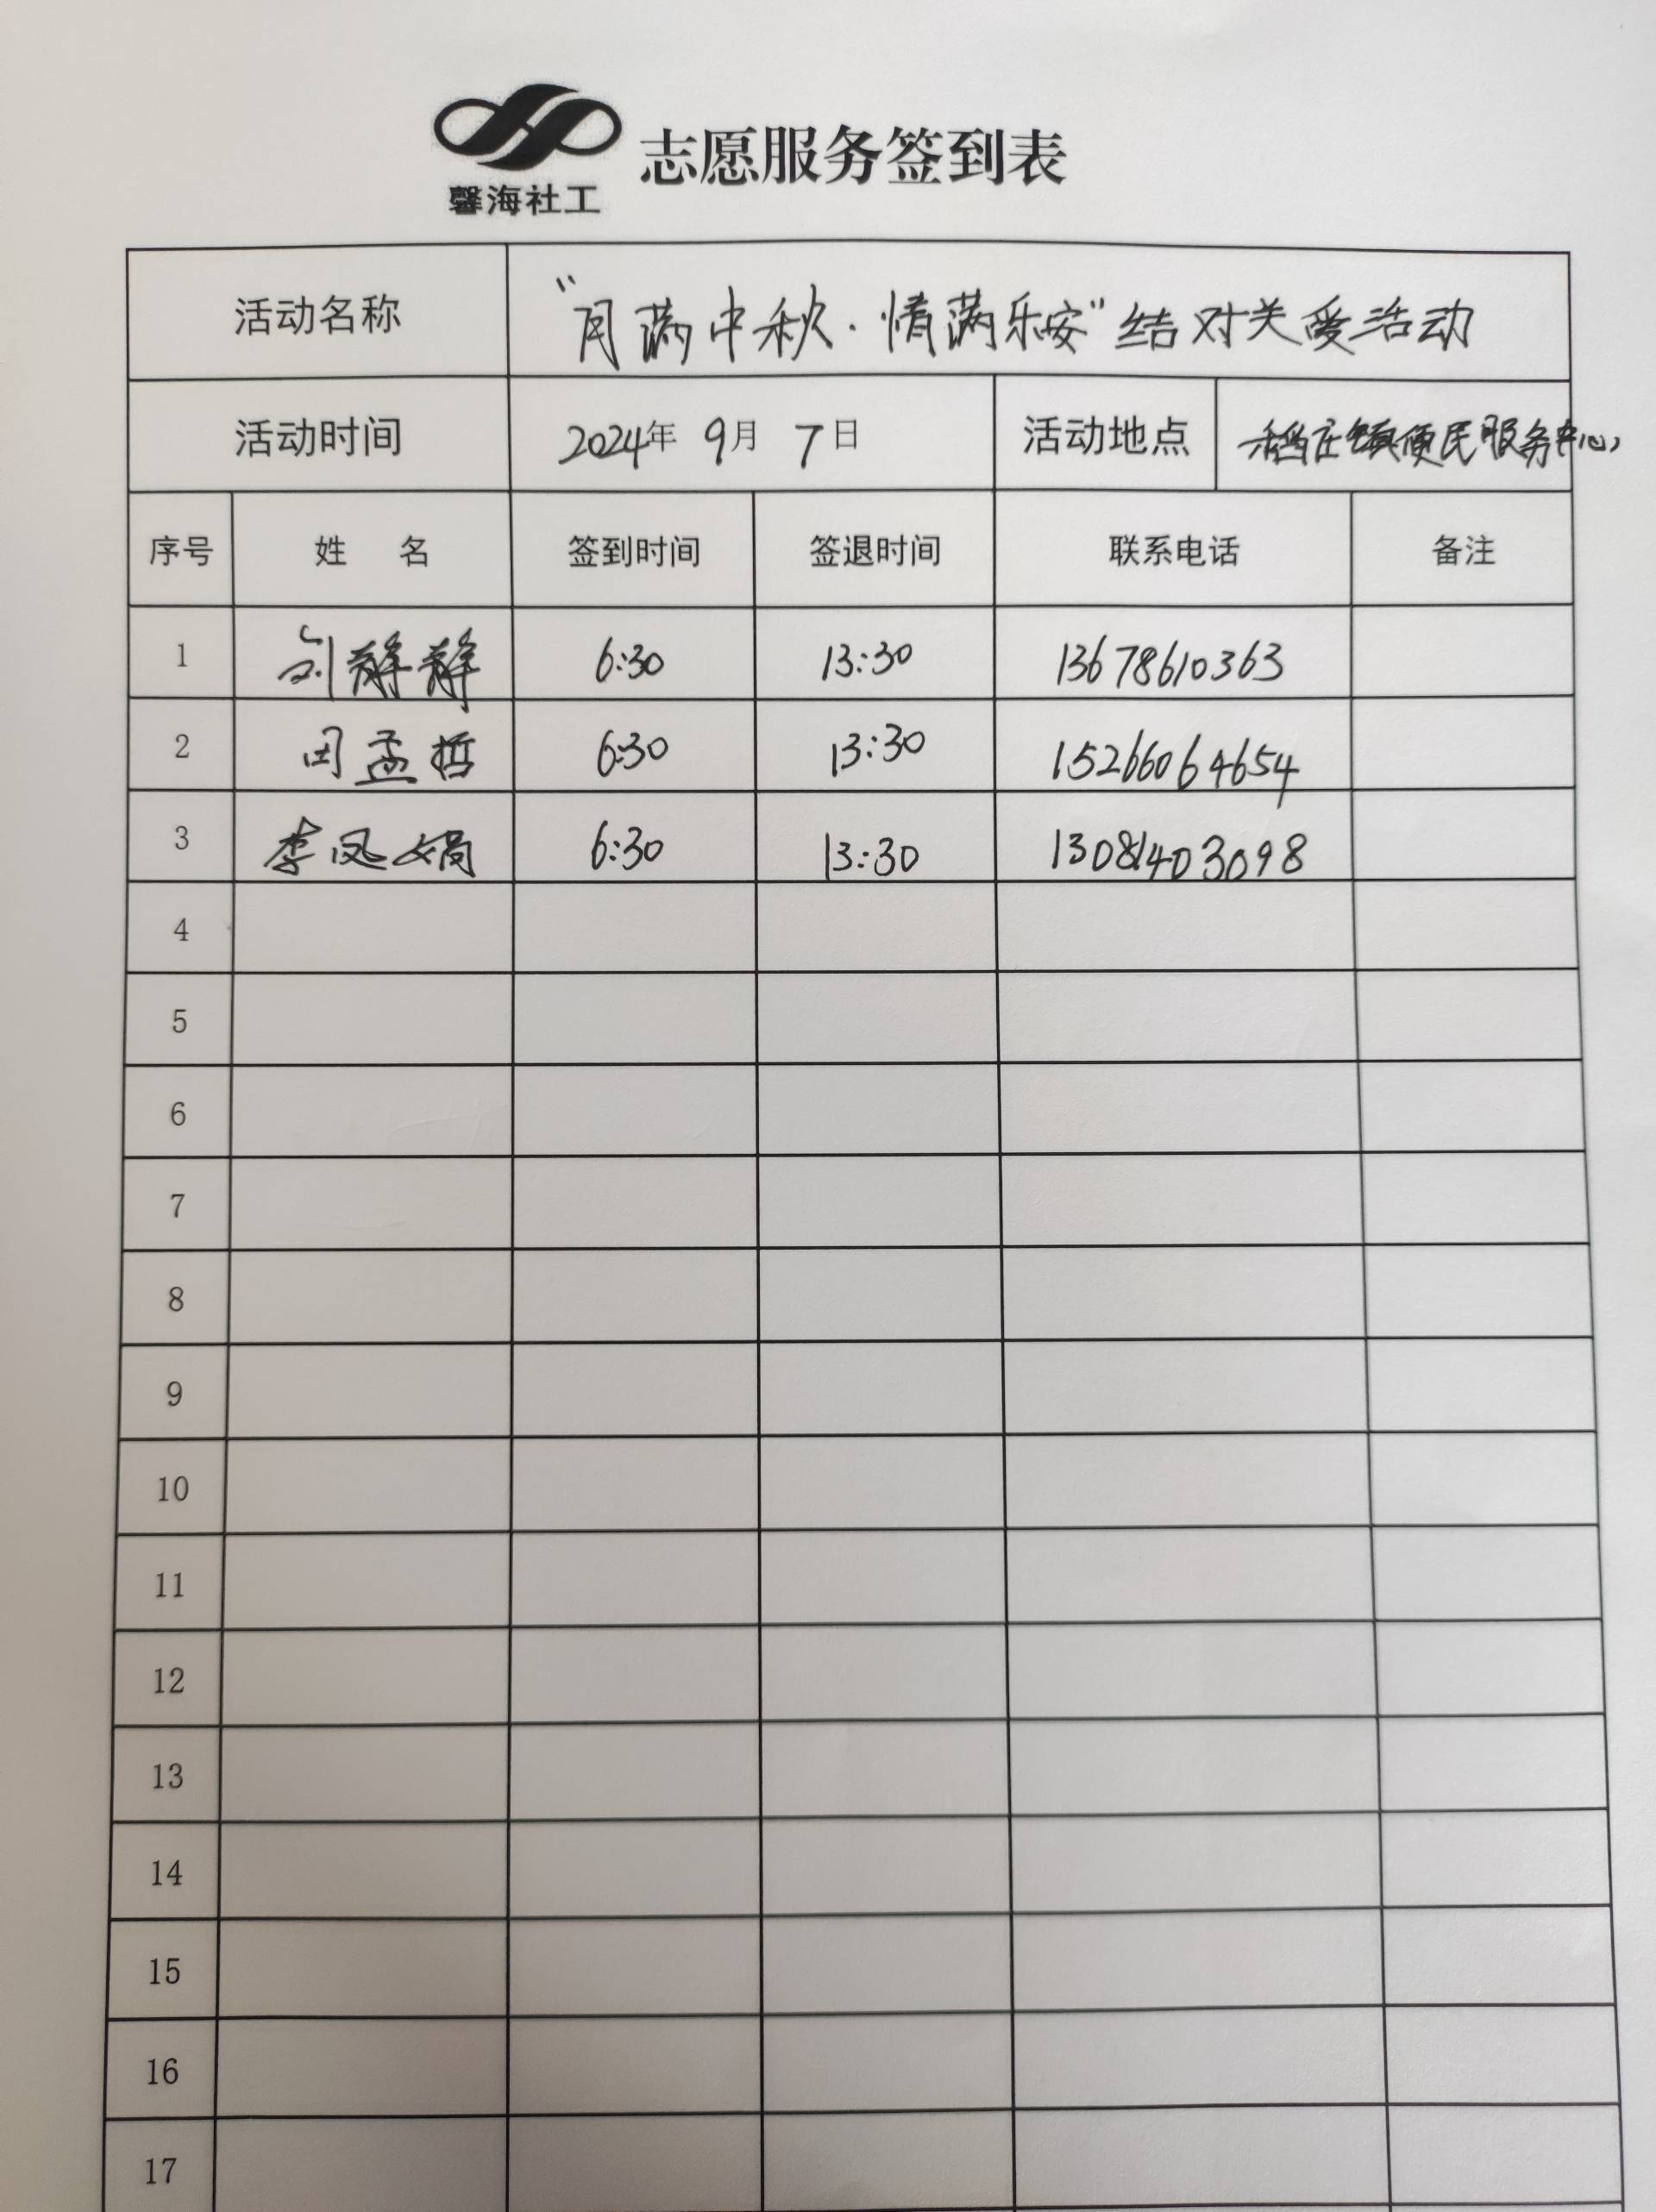 馨海社工 志愿服务签到表
活动名称 “月满中秋·情满乐安”结对关爱活动
活动时间 2024年 9月 7日 活动地点 稻庄镇便民服务中心
序号 姓 名 签到时间 签退时间 联系电话 备注
1 刘静静 6:30 13:30 13678610363
2 田孟哲 6:30 13:30 15266064654
3 李凤娟 6:30 13:30 13081403098
4
5
6
7
8
9
10
11
12
13
14
15
16
17